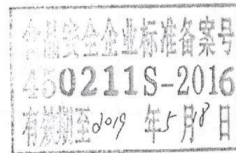 食品安全企业标准备案号
450211S-2016
有效期至2019年5月8日